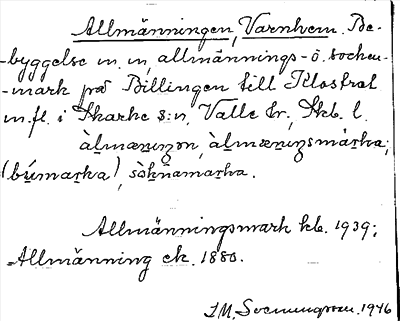 Allmänningen, Varnhem. Be-
-byggelse m. m, allmännings- o. socken-
-mark på Billingen till Klostret
m.fl. i Skarke s:n, Valle hr., Skb. l.
àlmæniŋən, àlmæniŋsmàrka;
(býmarka), sòknamarka.
Allmänningsmark kb. 1939;
=Allmänning ek. 1880.
J.M, 1946